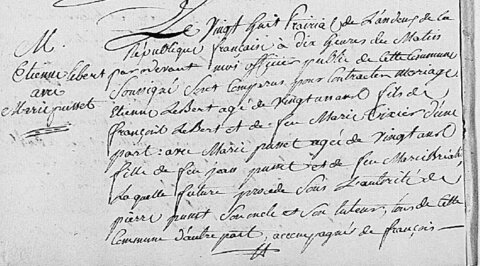 M.
Etienne lebert
avec
Marie punset
Le Vingt huit Prairial de L'an deux de La
République français à dix heures du Matin
par devant moi officier public de Cette Commune
Souvigné Sont Comparus pour Contracter mariage
Etienne LeBert agé de Vingt un ans fils de
françois LeBert et de feu Marie Tixier d'une
part: avec Marie punset agée de Vingt ans
fille de feu jean punset et de feu Marie
Laquelle future procede Sous L'autorité de
pierre punset Son oncle et Son tuteur, tous de Cette
Commune d'autre part, accompagné de françois